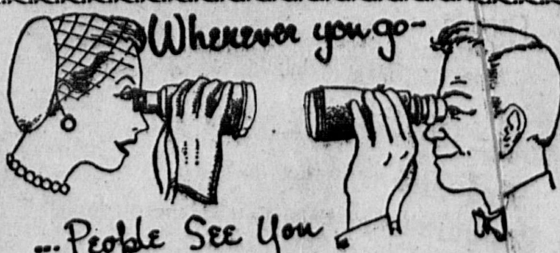 Wherever you go-
...People See You